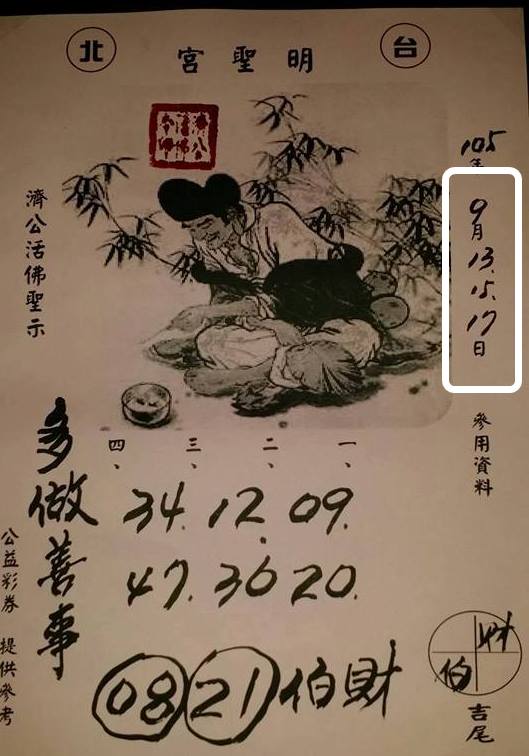 台北
明聖宮
105年
9月13.15.17日
參用資料
濟公活佛聖示
一、
二、
三、
四、
09.
12.
34.
20.
36
47.
多做善事
08 21 伯財
財
伯
吉尾
公益彩券 提供參考